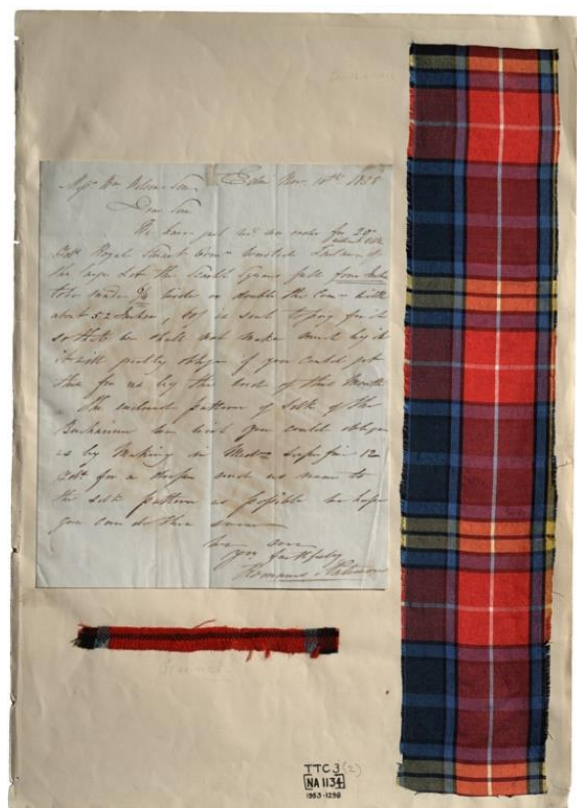 Messrs Wm Wilson & Son Edinr Novr 10th 1838
Dear Sirs
We have just recd an order for 20
Royal Stuart Com worsted Tartan of
the large Sett the Scarlet square full four Inches
to be made wide or double the Com width
about 52 Inches, is sent to pay for it
so that we shall not make much by it
it will greatly oblige if you could get
this for us by the end of this Month
The inclosed pattern of Silk of the
Buchanan we wish you could oblige
us by Making in superfine 12
for a Dress much as near to
the silk pattern as possible we hope
you can do this soon
We are
yrs faithfully
Romanes & Paterson
TTC 3 (2)
NA 1134
1953-1298